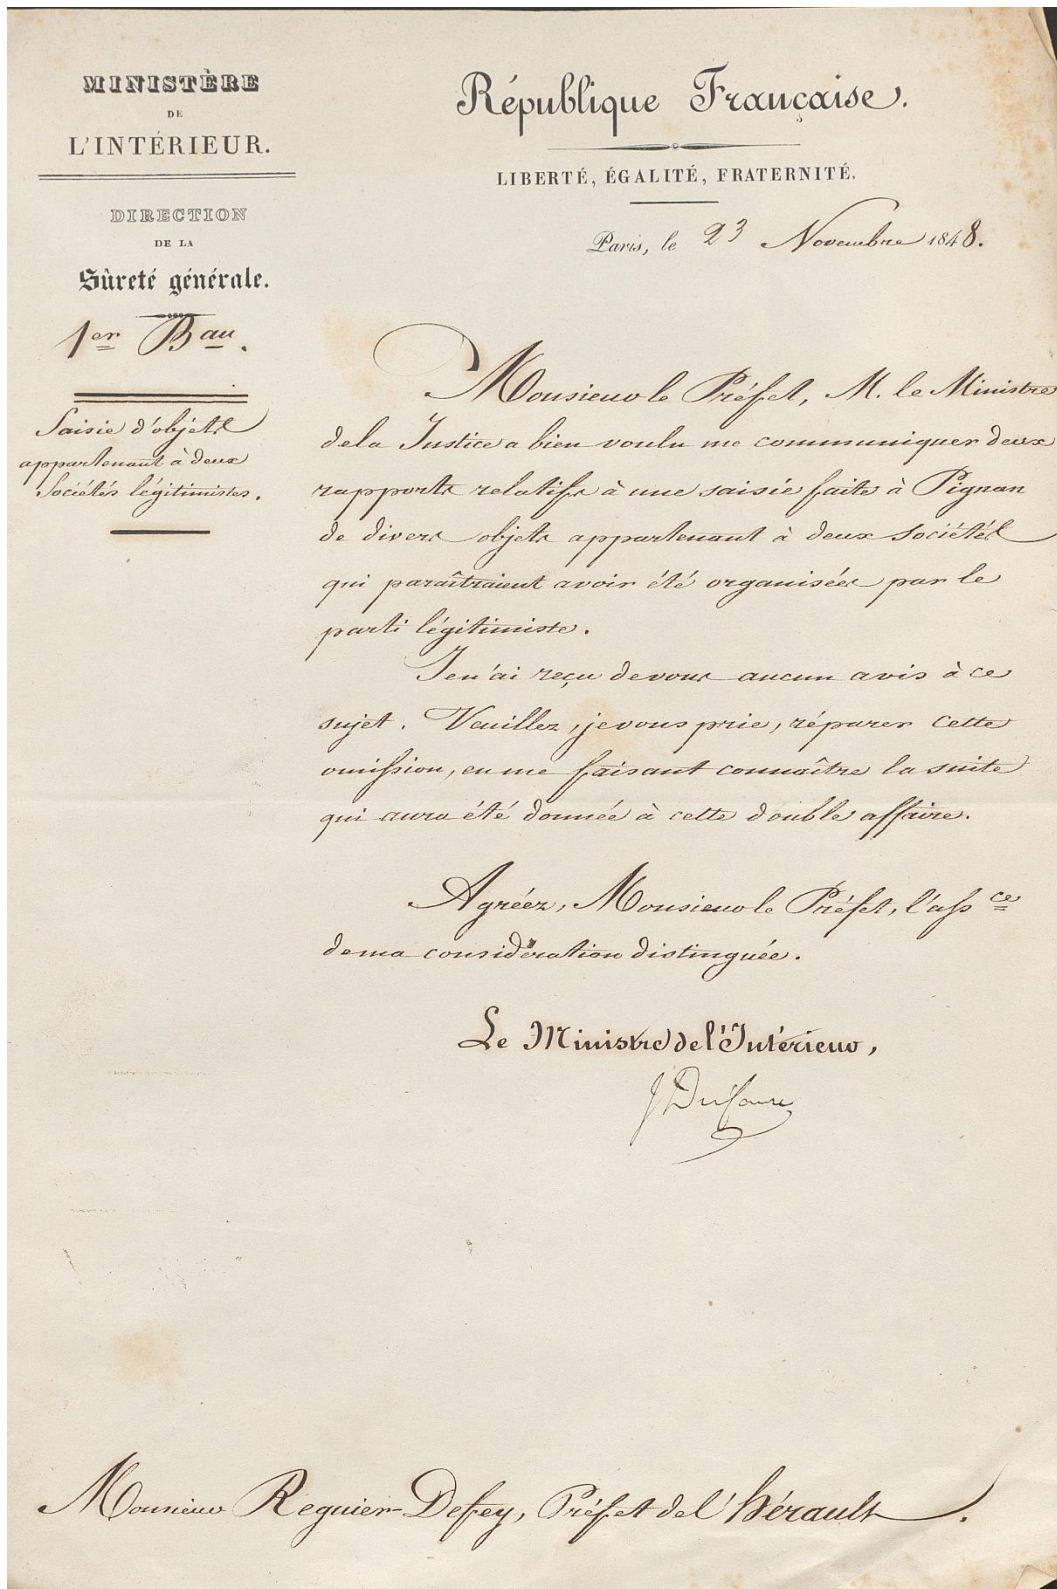 MINISTÈRE
DE
L'INTÉRIEUR.
DIRECTION
DE LA
Sûreté générale.
1er Bau.
Saisie d'objets
appartenant à deux
Sociétés légitimistes.
République Française.
LIBERTÉ, ÉGALITÉ, FRATERNITÉ.
Paris, le 23 Novembre 1848.
Monsieur le Préfet, M. le Ministre
de la Justice a bien voulu me communiquer deux
rapports relatifs à une saisie faite à Pignan
de divers objets appartenant à deux Sociétés
qui paraîtraient avoir été organisées par le
parti légitimiste.
Je n'ai reçu de vous aucun avis à ce
sujet. Veuillez, je vous prie, réparer cette
omission, en me faisant connaître la suite
qui aura été donnée à cette double affaire.
Agréez, Monsieur le Préfet, l'assce
de ma considération distinguée.
Le Ministre de l'Intérieur,
J Dufaure
Monsieur Reguier-Defey, Préfet de l'Hérault.